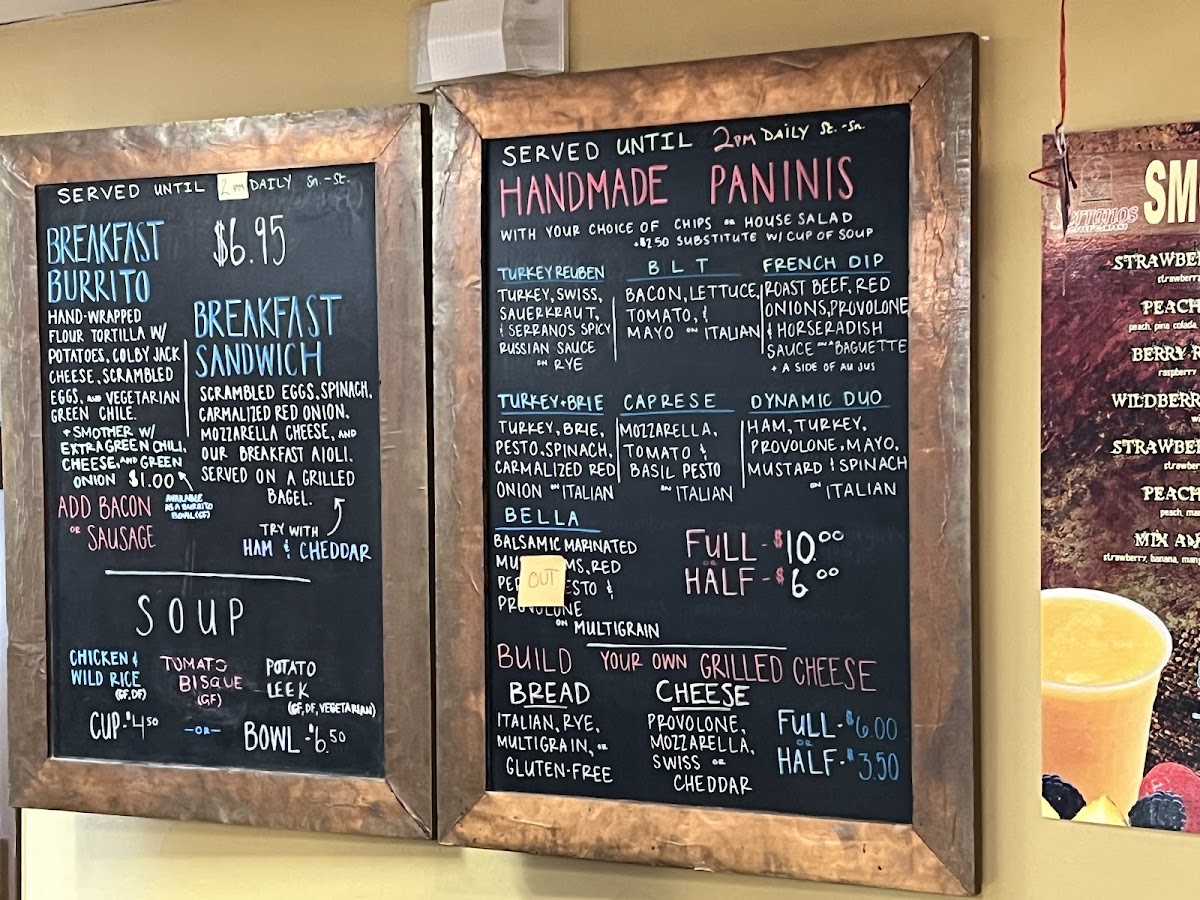 SERVED UNTIL 2PM DAILY Sn.-St.
BREAKFAST
BURRITO
$6.95
HAND-WRAPPED
FLOUR TORTILLA W/
POTATOES, COLBY JACK
CHEESE, SCRAMBLED
EGGS, AND VEGETARIAN
GREEN CHILE.
+ SMOTHER W/
EXTRA GREEN CHILI,
CHEESE, AND GREEN
ONION $1.00
AVAILABLE
AS A BURRITO
BOWL (GF)
ADD BACON
OR SAUSAGE
BREAKFAST
SANDWICH
SCRAMBLED EGGS, SPINACH,
CARMALIZED RED ONION,
MOZZARELLA CHEESE, AND
OUR BREAKFAST AIOLI.
SERVED ON A GRILLED
BAGEL.
TRY WITH
HAM & CHEDDAR
SOUP
CHICKEN &
WILD RICE
(GF, DF)
TOMATO
BISQUE
(GF)
POTATO
LEEK
(GF, DF, VEGETARIAN)
CUP-$4.50 -OR- BOWL-$6.50
SERVED UNTIL 2PM DAILY St.-Sn.
HANDMADE PANINIS
WITH YOUR CHOICE OF CHIPS OR HOUSE SALAD
+$2.50 SUBSTITUTE W/ CUP OF SOUP
TURKEY REUBEN
TURKEY, SWISS,
SAUERKRAUT,
& SERRANOS SPICY
RUSSIAN SAUCE
ON RYE
BLT
BACON, LETTUCE,
TOMATO, &
MAYO ON ITALIAN
FRENCH DIP
ROAST BEEF, RED
ONIONS, PROVOLONE
& HORSERADISH
SAUCE ON A BAGUETTE
+ A SIDE OF AU JUS
TURKEY+BRIE
TURKEY, BRIE,
PESTO, SPINACH,
CARMALIZED RED
ONION ON ITALIAN
CAPRESE
MOZZARELLA,
TOMATO &
BASIL PESTO
ON ITALIAN
DYNAMIC DUO
HAM, TURKEY,
PROVOLONE, MAYO,
MUSTARD & SPINACH
ON ITALIAN
BELLA
BALSAMIC MARINATED
MU MS, RED
PE ESTO &
PROVOLONE
ON MULTIGRAIN
OUT
FULL-$10.00
OR
HALF-$6.00
BUILD YOUR OWN GRILLED CHEESE
BREAD
ITALIAN, RYE,
MULTIGRAIN, OR
GLUTEN-FREE
CHEESE
PROVOLONE,
MOZZARELLA,
SWISS OR
CHEDDAR
FULL-$6.00
OR
HALF-$3.50
Serranos
COFFEE COMPANY
SM
STRAWBE
strawberry
PEACH
peach, pina colada
BERRY R
raspberry
WILDBERR
STRAWBE
strawber
PEACH
peach, man
MIX AN
strawberry, banana, mang